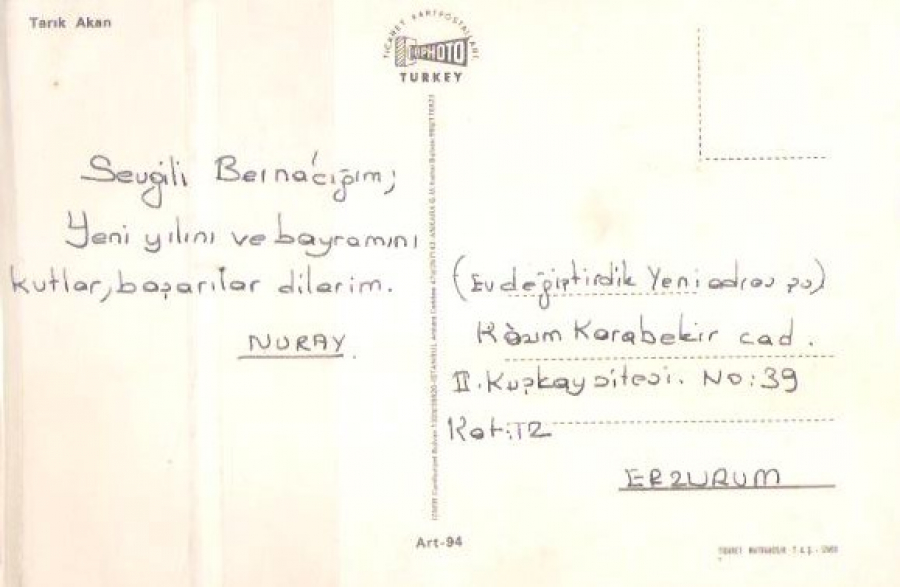 Tarık Akan
TİCARET KARTPOSTALLARI
TURKEY
Sevgili Berna'cığım;
Yeni yılını ve bayramını
kutlar, başarılar dilerim.
NURAY.
(Ev değiştirdik Yeni adres şu)
Kâzım Karabekir cad.
II. Kuşkay sitesi. No: 39
Kat: 12
ERZURUM
Art-94